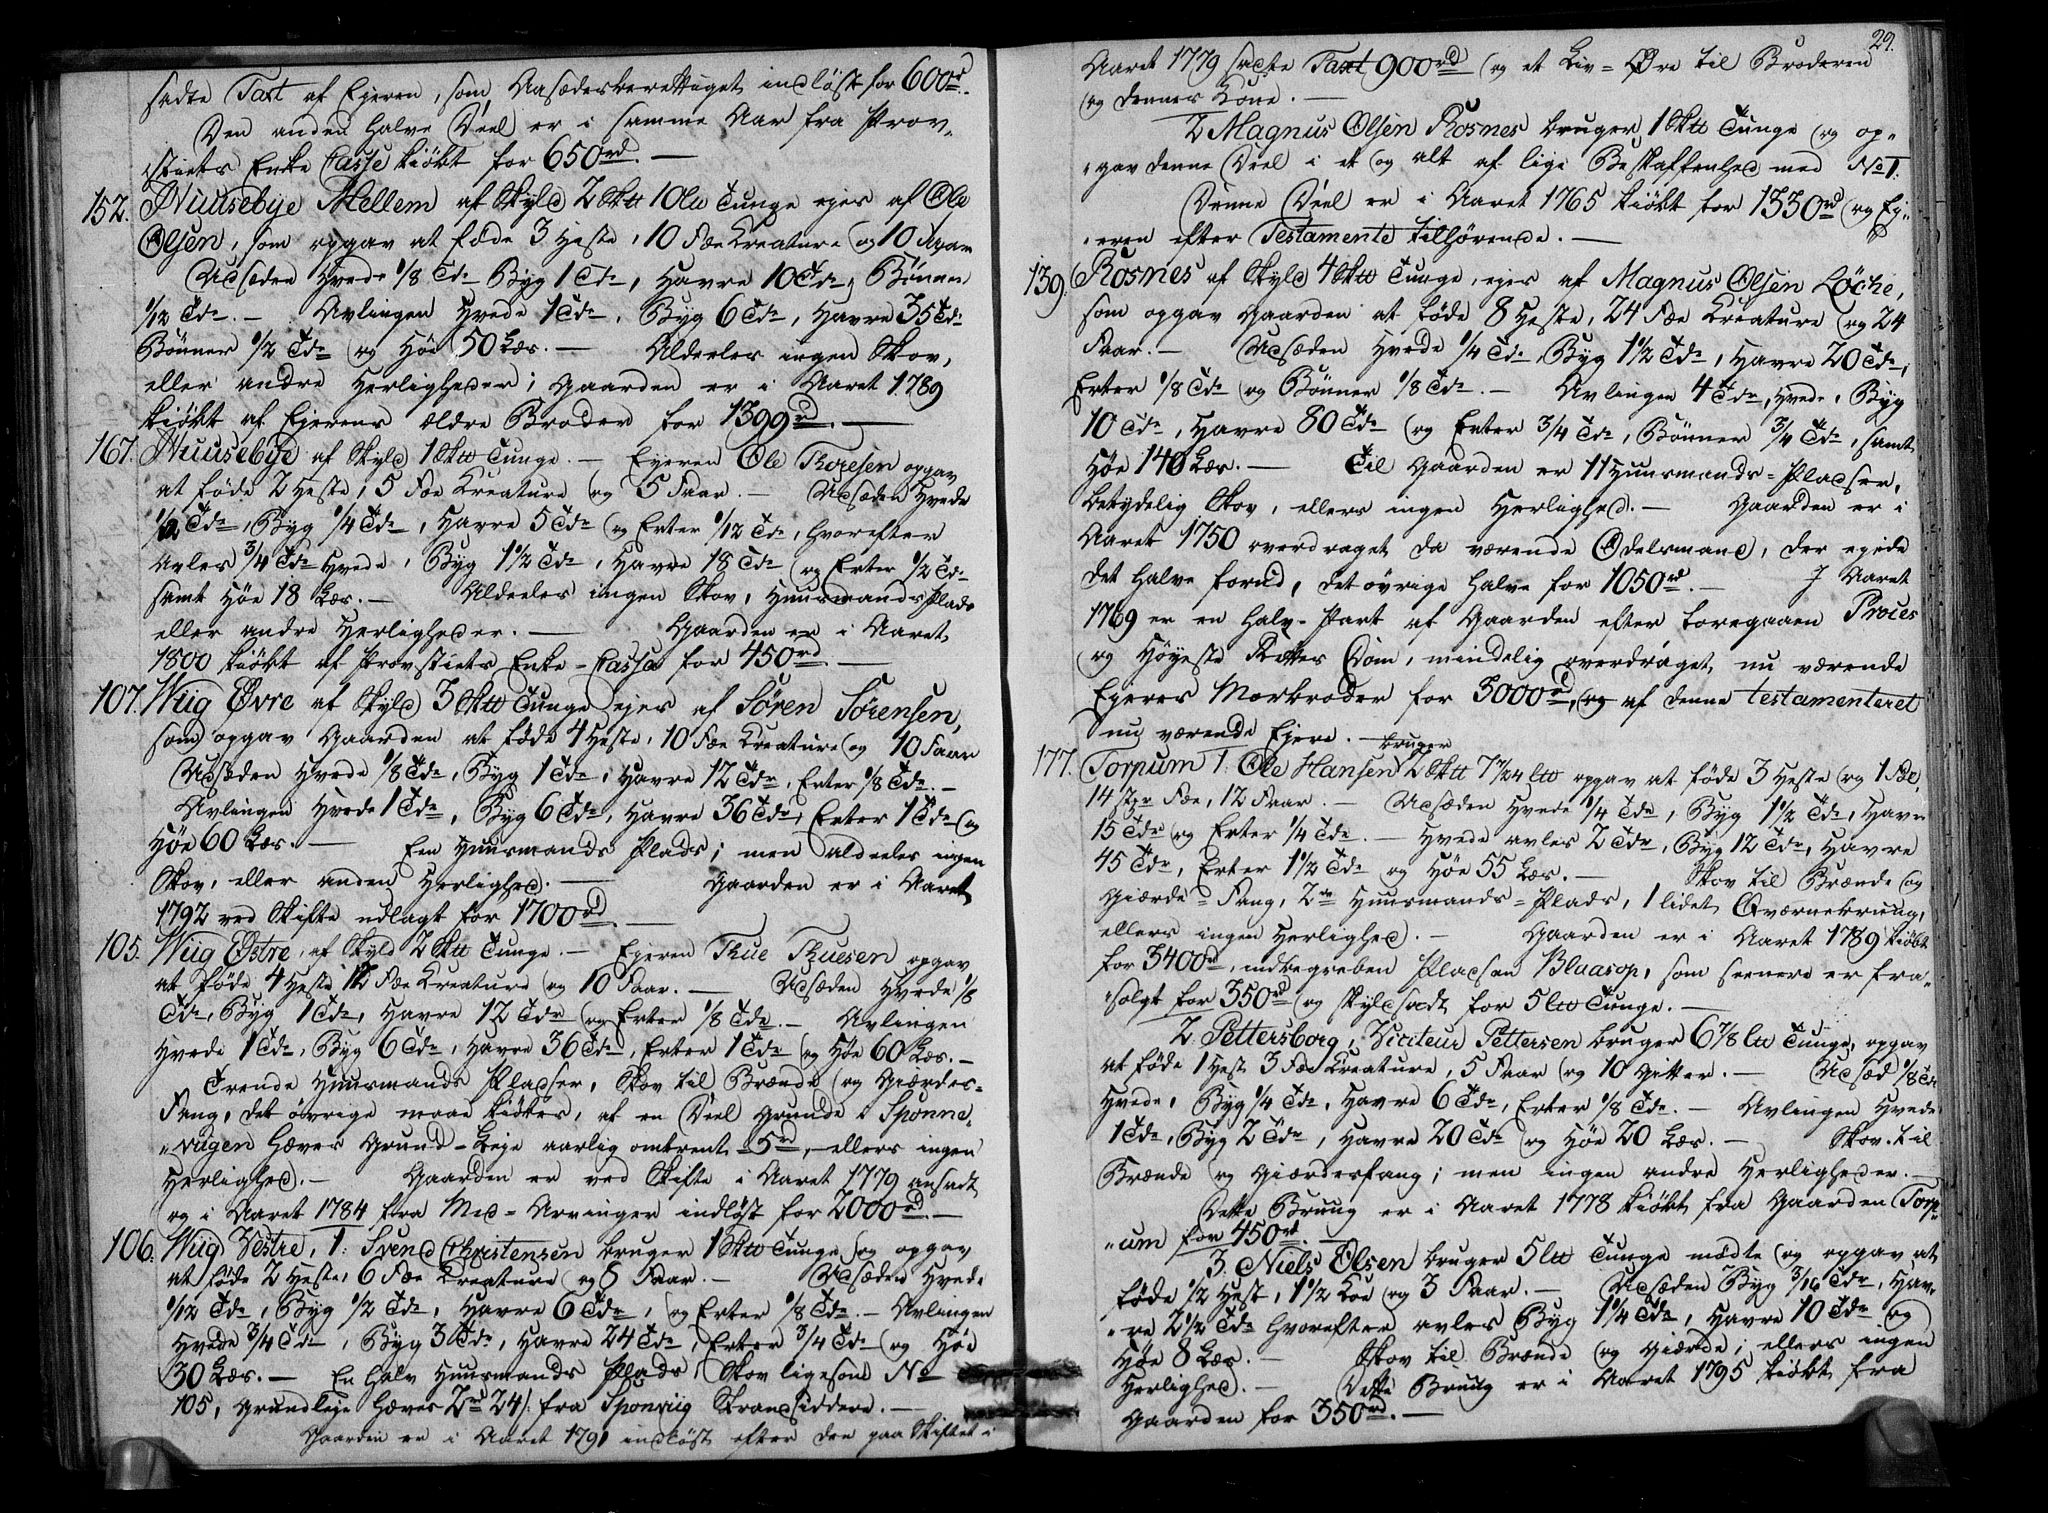 sadte Taxt af Ejeren, som Aasædesberettiget indløst for 600rd.
Den anden halve Deel er i samme Aar fra Prov„
„stiets Enke Casse kiøbt for 650rd. —
152. Nuusebÿe Mellem af Skyld 2 Sktt 1 Ltt Tunge ejes af Ole
Olsen, som opgav at føde 3 Heste, 10 Fæe Kreature og 10 Faar
Udsæden Hvede 1/8 Tde Byg 1 Tde, Havre 10 Tde, Bönner
1/12 Tde. — Avlingen Hvede 1 Tde, Byg 6 Tde, Havre 35 Tde
Bönner 1/2 Tde og Höe 50 Læs. — Aldeeles ingen Skov,
eller andre Herligheder; Gaarden er i Aaret 1789
kiøbt af Ejerens ældre Broder for 1399rd. —
167. Nuusebÿe af Skyld 1 Sktt Tunge. — Ejeren Ole Thoresen opgav
at føde 2 Heste, 5 Fæe Kreature og 5 Faar. — Udsæden Hvede
1/12 Tde, Byg 1/4 Tde, Havre 5 Tde og Erter 1/12 Tde, hvorefter
Avles 3/4 Tde Hvede, Byg 1 1/2 Tde, Havre 18 Tde og Erter 1/2 Tde
samt Höe 18 Læs. — Aldeeles ingen Skov, Huusmands Plads
eller andre Herligheder. — Gaarden er i Aaret
1800 kiøbt af Provstiets Enke-Casse for 450rd. —
107. Wiig Øvre af Skyld 3 Sktt Tunge ejes af Sören Sörensen,
som opgav Gaarden at føde 4 Heste, 10 Fæe Kreature og 10 Faar
Udsæden Hvede 1/8 Tde, Byg 1 Tde, Havre 12 Tde, Erter 1/8 Tde. —
Avlingen Hvede 1 Tde, Byg 6 Tde, Havre 36 Tde, Erter 1 Tde og
Höe 60 Læs. — Een Huusmands Plads; men aldeeles ingen
Skov, eller anden Herlighed. — Gaarden er i Aaret
1792 ved Skifte udlagt for 1700rd. —
105. Wiig Østre, af Skyld 2 Sktt Tunge. — Ejeren Thue Thuesen opgav
at føde 4 Heste 12 Fæe Kreature og 10 Faar. — Udsæden Hvede 1/8
Tde, Byg 1 Tde, Havre 12 Tde og Erter 1/8 Tde. — Avlingen
Hvede 1 Tde, Byg 6 Tde, Havre 36 Tde, Erter 1 Tde og Höe 60 Læs. —
Trende Huusmands Pladser, Skov til Brænde og Giærdes-
Fang, det övrige maae kiøbes, af en Deel Grunde i Sponne„
„vigen hæves Grund-Leje aarlig omtrent 5rd, ellers ingen
Herlighed. — Gaarden er ved Skifte i Aaret 1779 ansadt
og i Aaret 1784 fra Med-Arvinger indløst for 2000rd. —
106. Wiig Vestre, 1: Svend Christensen bruger 1 Sktt Tunge og opgav
at føde 2 Heste, 6 Fæe Kreature og 8 Faar. — Udsæden Hvede
1/12 Tde, Byg 1/2 Tde, Havre 6 Tde, og Erter 1/8 Tde. — Avlingen
Hvede 3/4 Tde, Byg 3 Tde, Havre 24 Tde, Erter 3/4 Tde og Höe
30 Læs. — En halv Huusmands Plads, Skov ligesom No
105, Grundleje hæves 2rd 24/: fra Sponviig Strandsiddere. —
Gaarden er i Aaret 1791 indløst efter den paa Skiftet i
29.
Aaret 1779 sadte Taxt 900rd og et Liv-Øre til Broderen
og dennes Kone. —
2 Magnus Olsen Rosnes bruger 1 Sktt Tunge og op„
„gav denne Deel i et og alt af lige Beskaffenhed med No 1.
Denne Deel er i Aaret 1765 kiøbt for 1330rd og Ej„
„eren efter Testamente tilhörende. —
139. Rosnes af Skyld 4 Sktt Tunge, ejes af Magnus Olsen Löche,
som opgav Gaarden at føde 8 Heste, 24 Fæe Kreature og 24
Faar. — Udsæden Hvede 1/4 Tde, Byg 1 1/2 Tde, Havre 20 Tde,
Erter 1/8 Tde og Bönner 1/8 Tde. — Avlingen 4 Tde, Hvede, Byg
10 Tde, Havre 80 Tde og Erter 3/4 Tde, Bönner 3/4 Tde, samt
Höe 140 Læs. — Til Gaarden er 11 Huusmands-Pladser,
betydelig Skov, ellers ingen Herlighed. — Gaarden er i
Aaret 1750 overdraget da værende Odelsmand, der ejede
det halve forud, det övrige halve for 1050rd. — I Aaret
1769 er en halv-Part af Gaarden efter foregaaen Proces
og Höyeste Rettes Dom, mindelig overdraget nu værende
Ejeres Morbroder for 3000rd, og af denne testamenteret
nu værende Ejere. —
177. Torpum 1: Ole Hansen bruger 2 Sktt 7 7/24 Ltt opgav at føde 3 Heste og 1 Føl,
14 st: Fæe, 12 Faar. — Udsæden Hvede 1/4 Tde, Byg 1 1/2 Tde, Havre
15 Tde og Erter 1/4 Tde. — Hvede avles 2 Tde, Byg 12 Tde, Havre
45 Tde, Erter 1 1/2 Tde og Höe 55 Læs. — Skov til Brænde og
Giærde-Fang, 2de Huusmands-Plads, 1 lidet Qværnebruug,
ellers ingen Herlighed. — Gaarden er i Aaret 1789 kiøbt
for 3400rd, indbegreben Pladsen Blaasop, som seenere er fra„
„solgt for 350rd og skyldsadt for 5 Ltt Tunge. —
2. Pettersborg, Viciteur Pettersen bruger 6 7/8 Ltt Tunge, opgav
at føde 1 Hest 3 Fæe Kreature, 5 Faar og 10 Gitter. — Udsæd 1/8 Tde
Hvede, Byg 1/4 Tde, Havre 6 Tde, Erter 1/8 Tde. — Avlingen Hvede
1 Tde, Byg 2 Tde, Havre 20 Tde og Höe 20 Læs. — Skov til
Brænde og Giærdesfang; men ingen andre Herligheder. —
Dette Bruug er i Aaret 1778 kiøbt fra Gaarden Torp„
„um for 450rd. —
3. Niels Olsen bruger 5 Ltt Tunge mødte og opgav at
føde 1/2 Hest, 1 1/2 Koe og 3 Faar. — Udsæden Byg 3/16 Tde, Hav„
„re 2 1/2 Tde hvorefter avles Byg 1 1/4 Tde, Havre 10 Tde og
Höe 8 Læs. — Skov til Brænde og Giærde; ellers ingen
Herlighed. — Dette Bruug er i Aaret 1795 kiøbt fra
Gaarden for 350rd. —